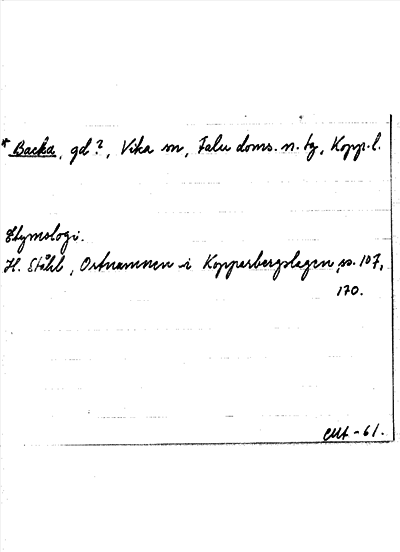 * Backa, gd?, Vika sn, Falu doms. n. tg, Kopp. l.
Etymologi.
H. Ståhl, Ortnamnen i Kopparbergslagen, ss. 107,
170.
-61.